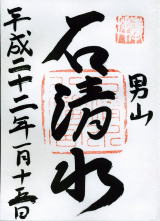 男山
石清水
平成二十二年一月十五日